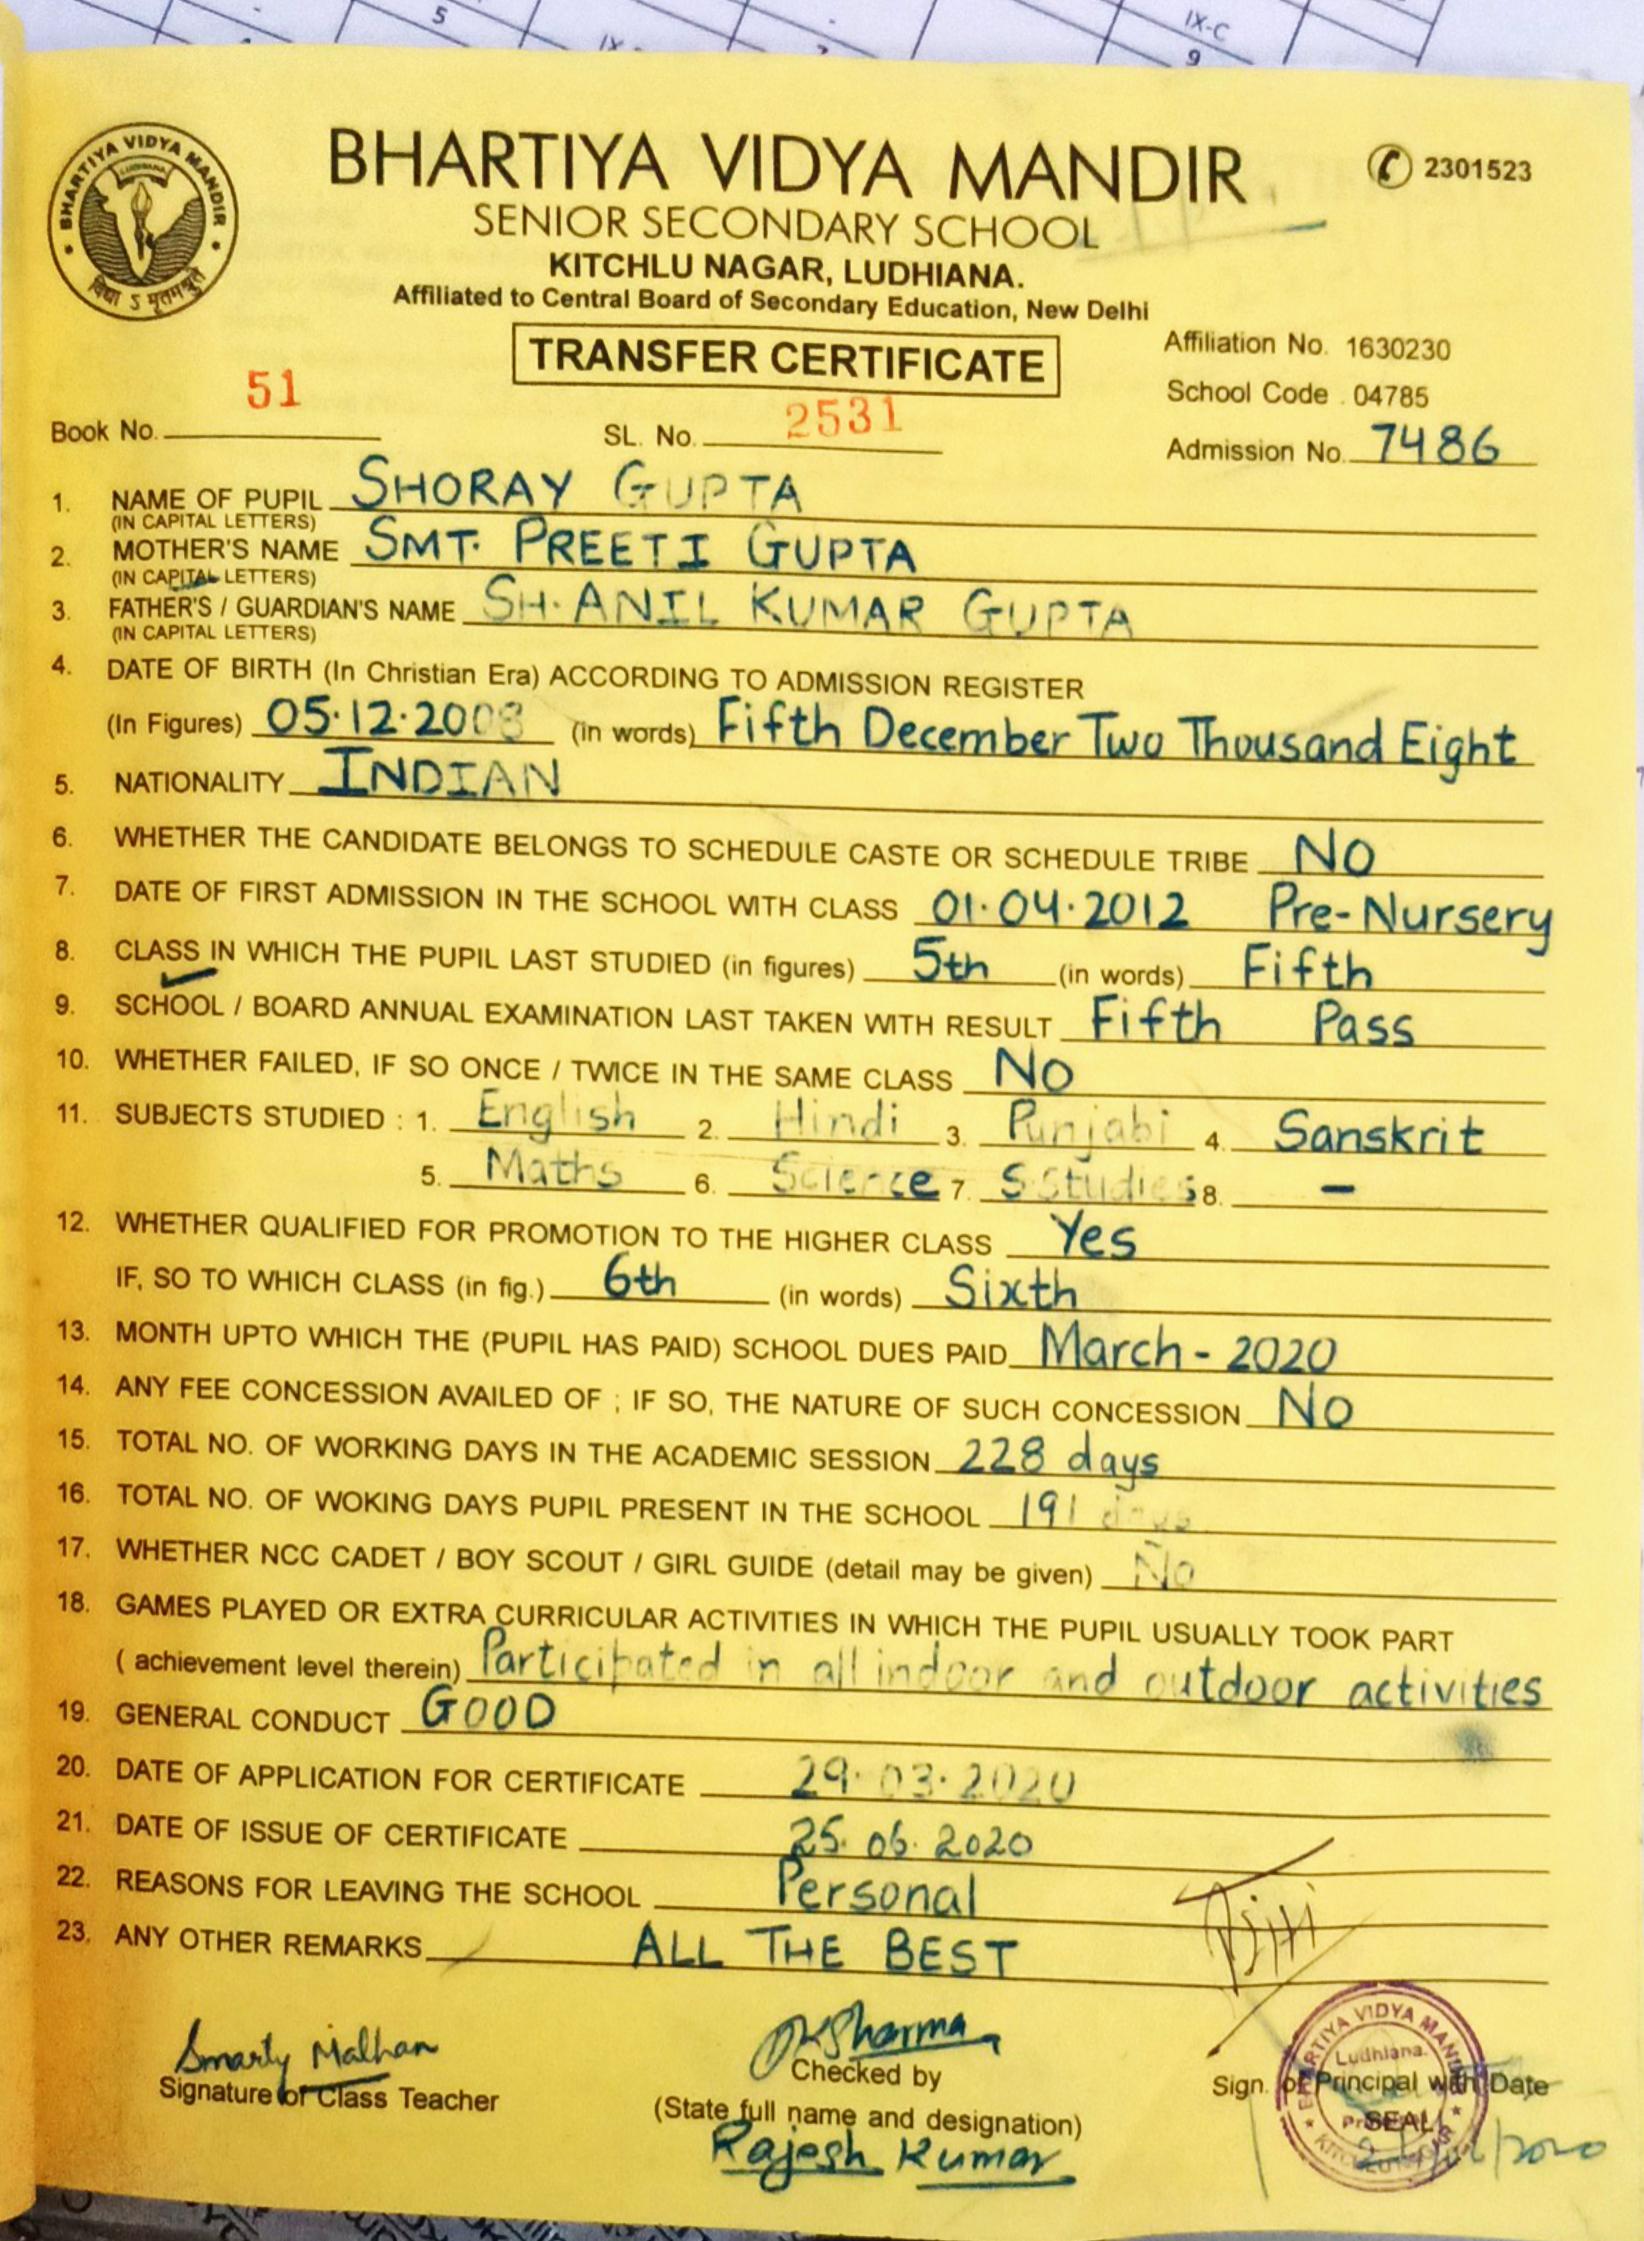 5
IX-C
9
BHARTIYA VIDYA MANDIR
LUDHIANA
विद्या ऽ मृतमश्नुते
BHARTIYA VIDYA MANDIR
2301523
SENIOR SECONDARY SCHOOL
KITCHLU NAGAR, LUDHIANA.
Affiliated to Central Board of Secondary Education, New Delhi
TRANSFER CERTIFICATE
Affiliation No. 1630230
School Code . 04785
Book No. 51 SL. No. 2531 Admission No. 7486
1. NAME OF PUPIL SHORAY GUPTA
(IN CAPITAL LETTERS)
2. MOTHER'S NAME SMT. PREETI GUPTA
(IN CAPITAL LETTERS)
3. FATHER'S / GUARDIAN'S NAME SH. ANIL KUMAR GUPTA
(IN CAPITAL LETTERS)
4. DATE OF BIRTH (In Christian Era) ACCORDING TO ADMISSION REGISTER
(In Figures) 05.12.2008 (in words) Fifth December Two Thousand Eight
5. NATIONALITY INDIAN
6. WHETHER THE CANDIDATE BELONGS TO SCHEDULE CASTE OR SCHEDULE TRIBE NO
7. DATE OF FIRST ADMISSION IN THE SCHOOL WITH CLASS 01.04.2012 Pre-Nursery
8. CLASS IN WHICH THE PUPIL LAST STUDIED (in figures) 5th (in words) Fifth
9. SCHOOL / BOARD ANNUAL EXAMINATION LAST TAKEN WITH RESULT Fifth Pass
10. WHETHER FAILED, IF SO ONCE / TWICE IN THE SAME CLASS NO
11. SUBJECTS STUDIED : 1. English 2. Hindi 3. Punjabi 4. Sanskrit
5. Maths 6. Science 7. S.Studies 8. -
12. WHETHER QUALIFIED FOR PROMOTION TO THE HIGHER CLASS Yes
IF, SO TO WHICH CLASS (in fig.) 6th (in words) Sixth
13. MONTH UPTO WHICH THE (PUPIL HAS PAID) SCHOOL DUES PAID March - 2020
14. ANY FEE CONCESSION AVAILED OF ; IF SO, THE NATURE OF SUCH CONCESSION NO
15. TOTAL NO. OF WORKING DAYS IN THE ACADEMIC SESSION 228 days
16. TOTAL NO. OF WOKING DAYS PUPIL PRESENT IN THE SCHOOL 191 days
17. WHETHER NCC CADET / BOY SCOUT / GIRL GUIDE (detail may be given) No
18. GAMES PLAYED OR EXTRA CURRICULAR ACTIVITIES IN WHICH THE PUPIL USUALLY TOOK PART
( achievement level therein) Participated in all indoor and outdoor activities
19. GENERAL CONDUCT GOOD
20. DATE OF APPLICATION FOR CERTIFICATE 29.03.2020
21. DATE OF ISSUE OF CERTIFICATE 25.06.2020
22. REASONS FOR LEAVING THE SCHOOL Personal
23. ANY OTHER REMARKS ALL THE BEST
Smarty Malhan
Signature of Class Teacher
Sharma
Checked by
(State full name and designation)
Rajesh Kumar
BHARTIYA VIDYA MANDIR
Ludhiana.
Sign. of Principal with Date
Principal
SEAL
KITCHLU NAGAR